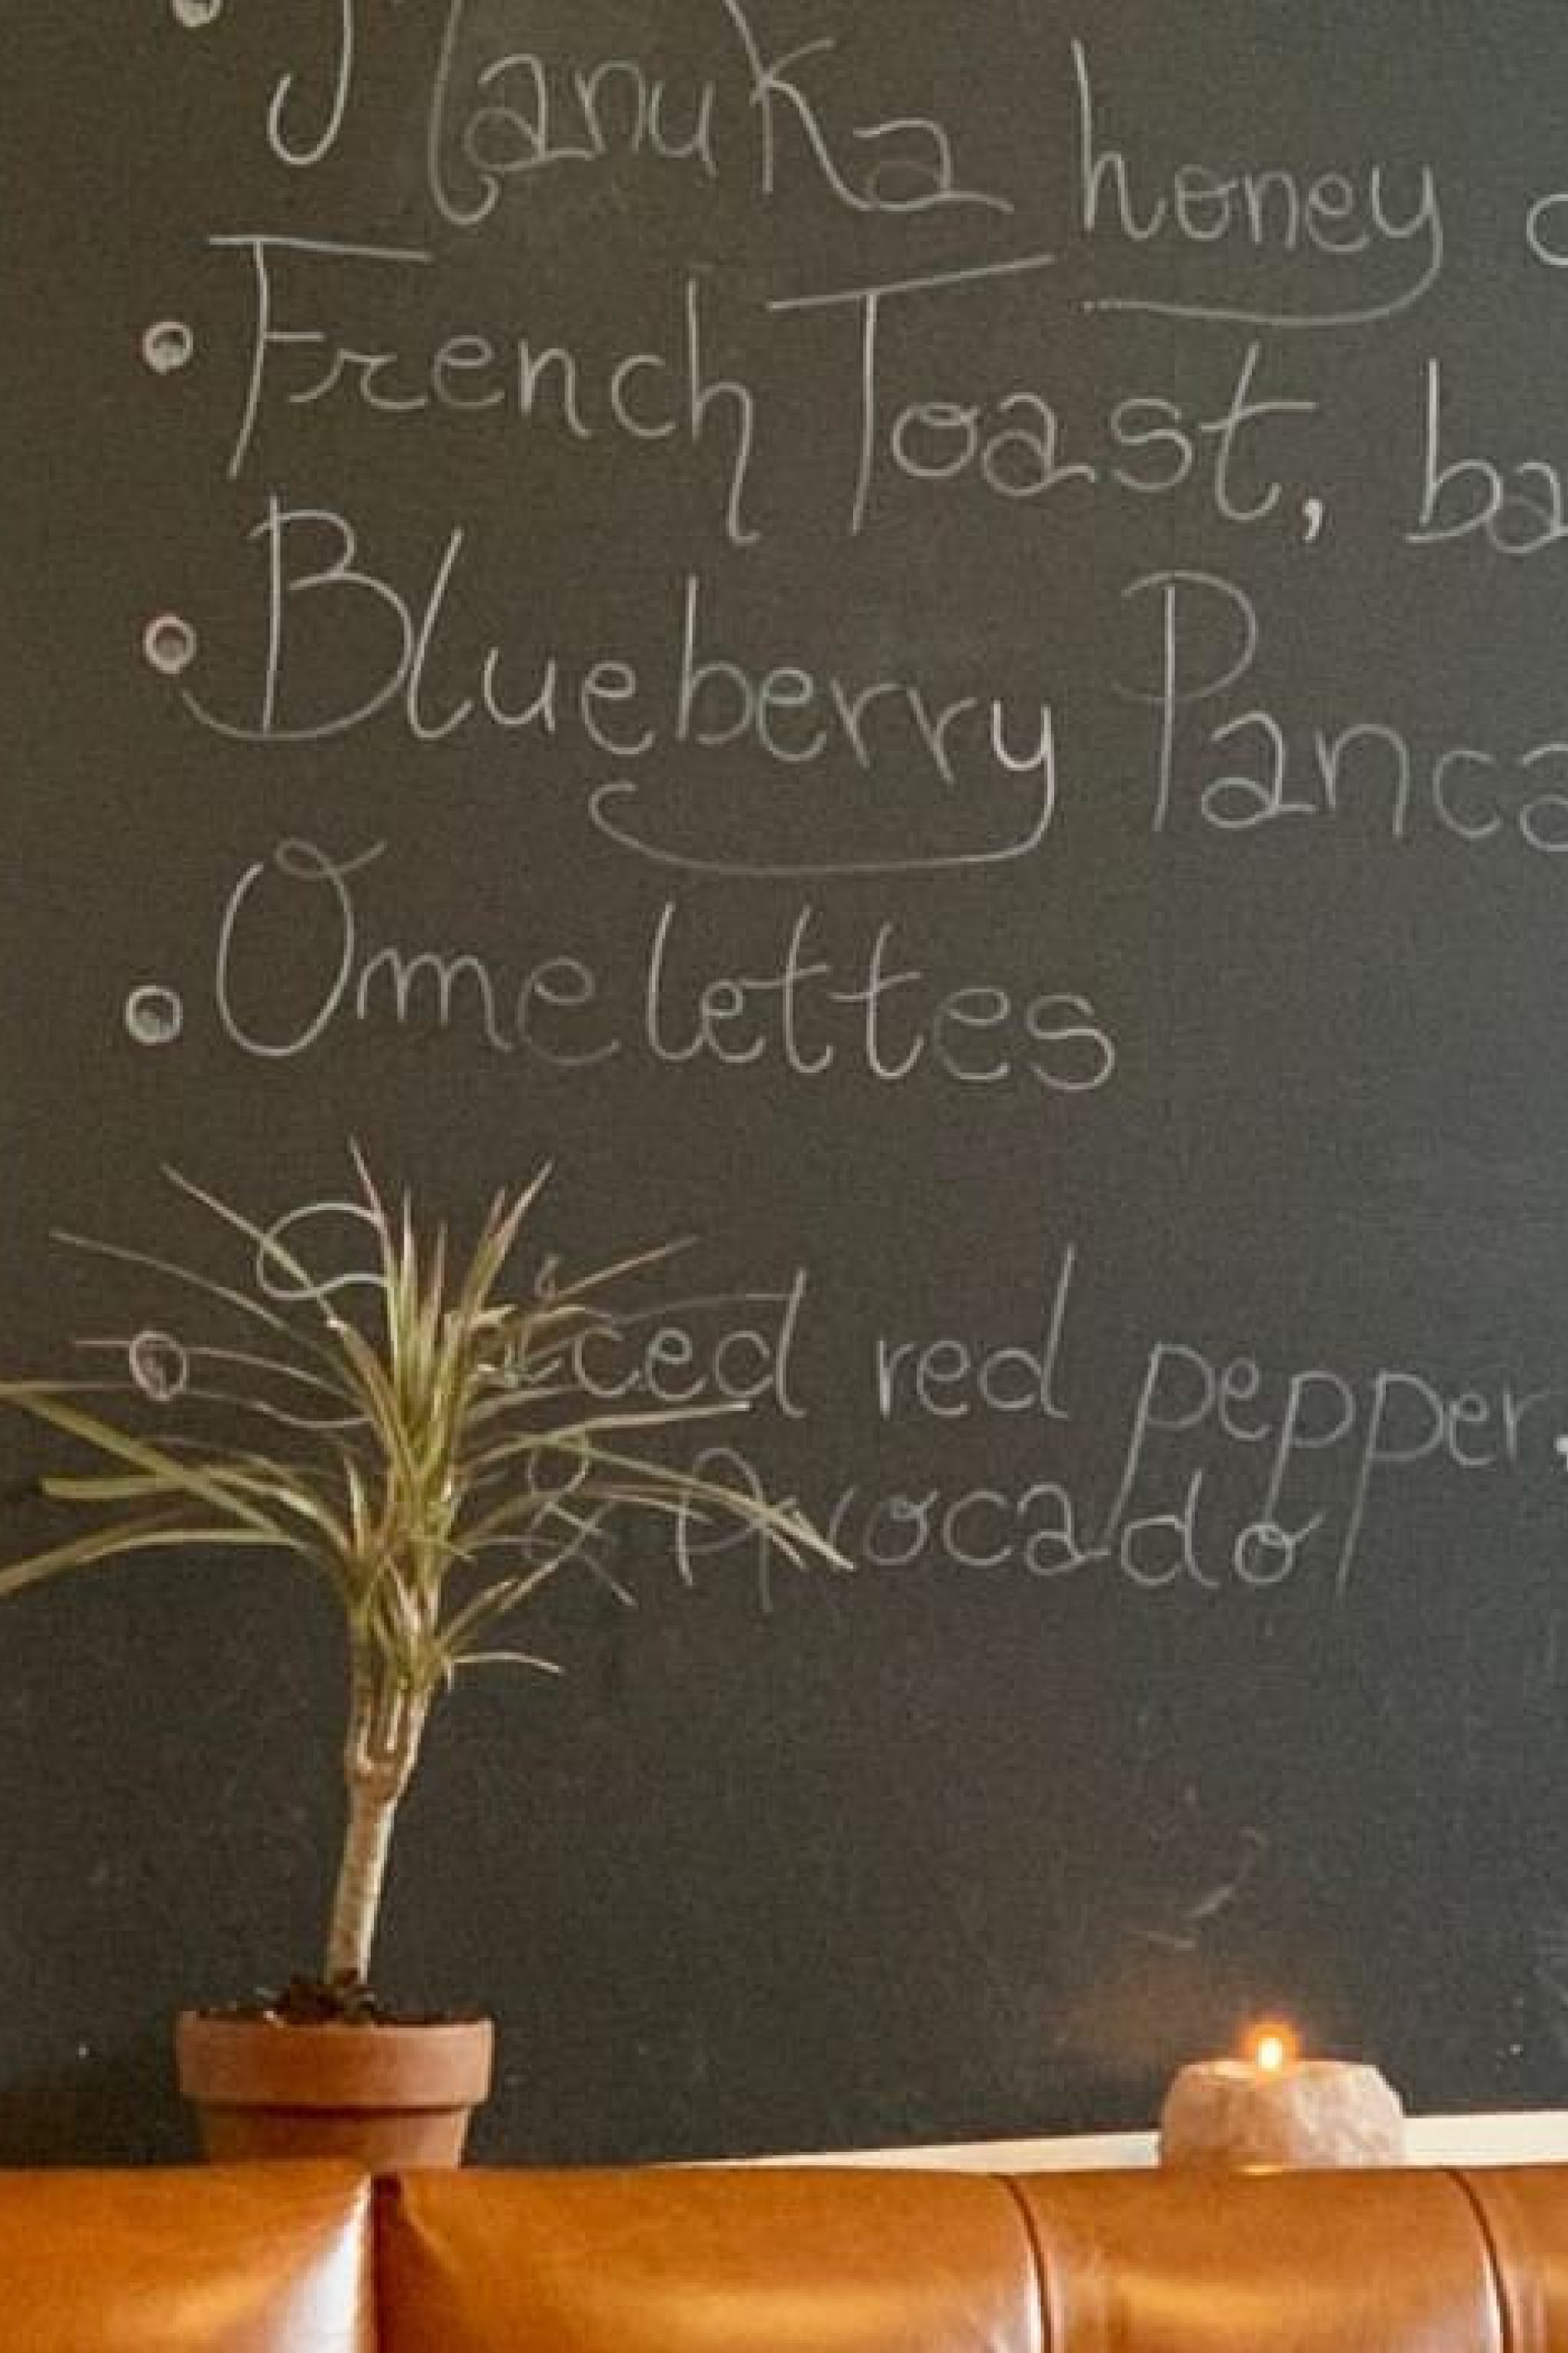 • Manuka honey
• French Toast,
• Blueberry
• Omelettes
red pepper,
& Avocado